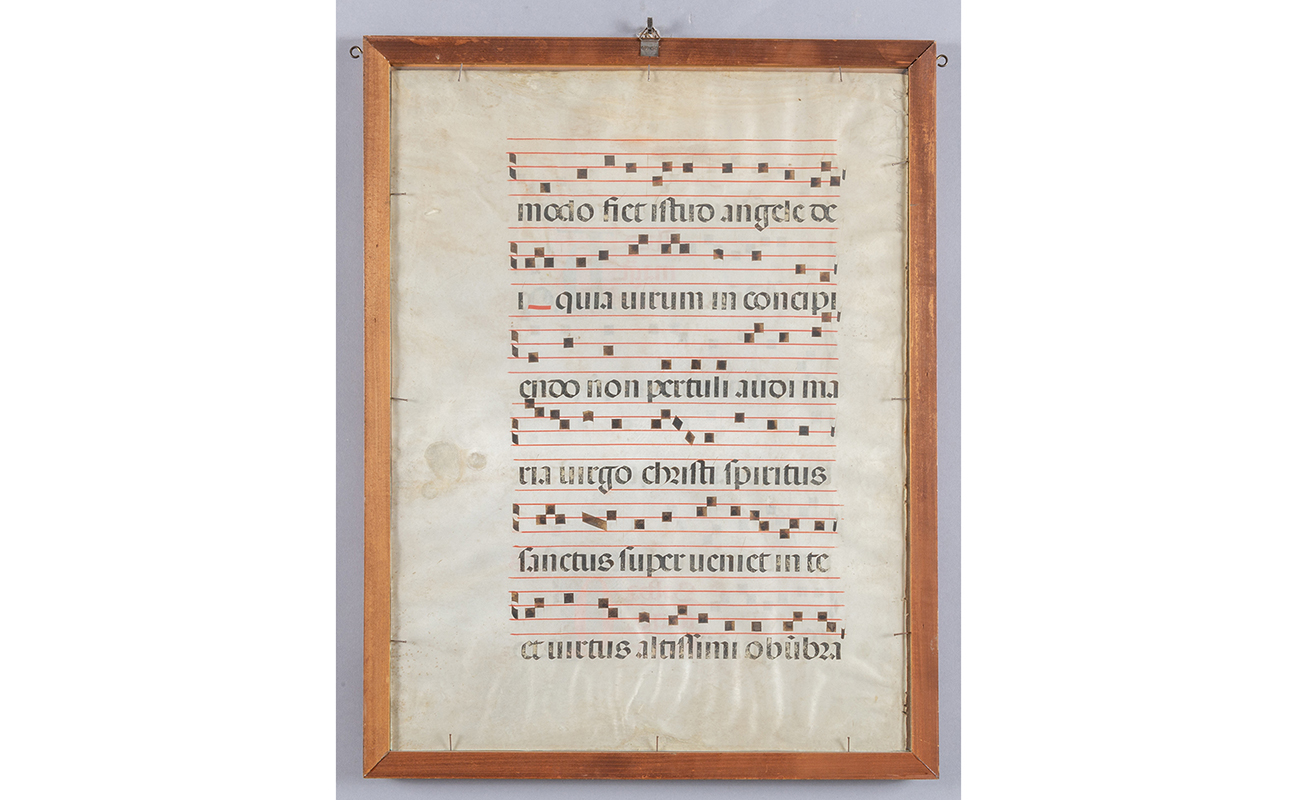 modo fiet istud angele de
i quia uirum in concipi
endo non pertuli audi ma
ria uirgo christi spiritus
sanctus super ueniet in te
et uirtus altissimi obūbra